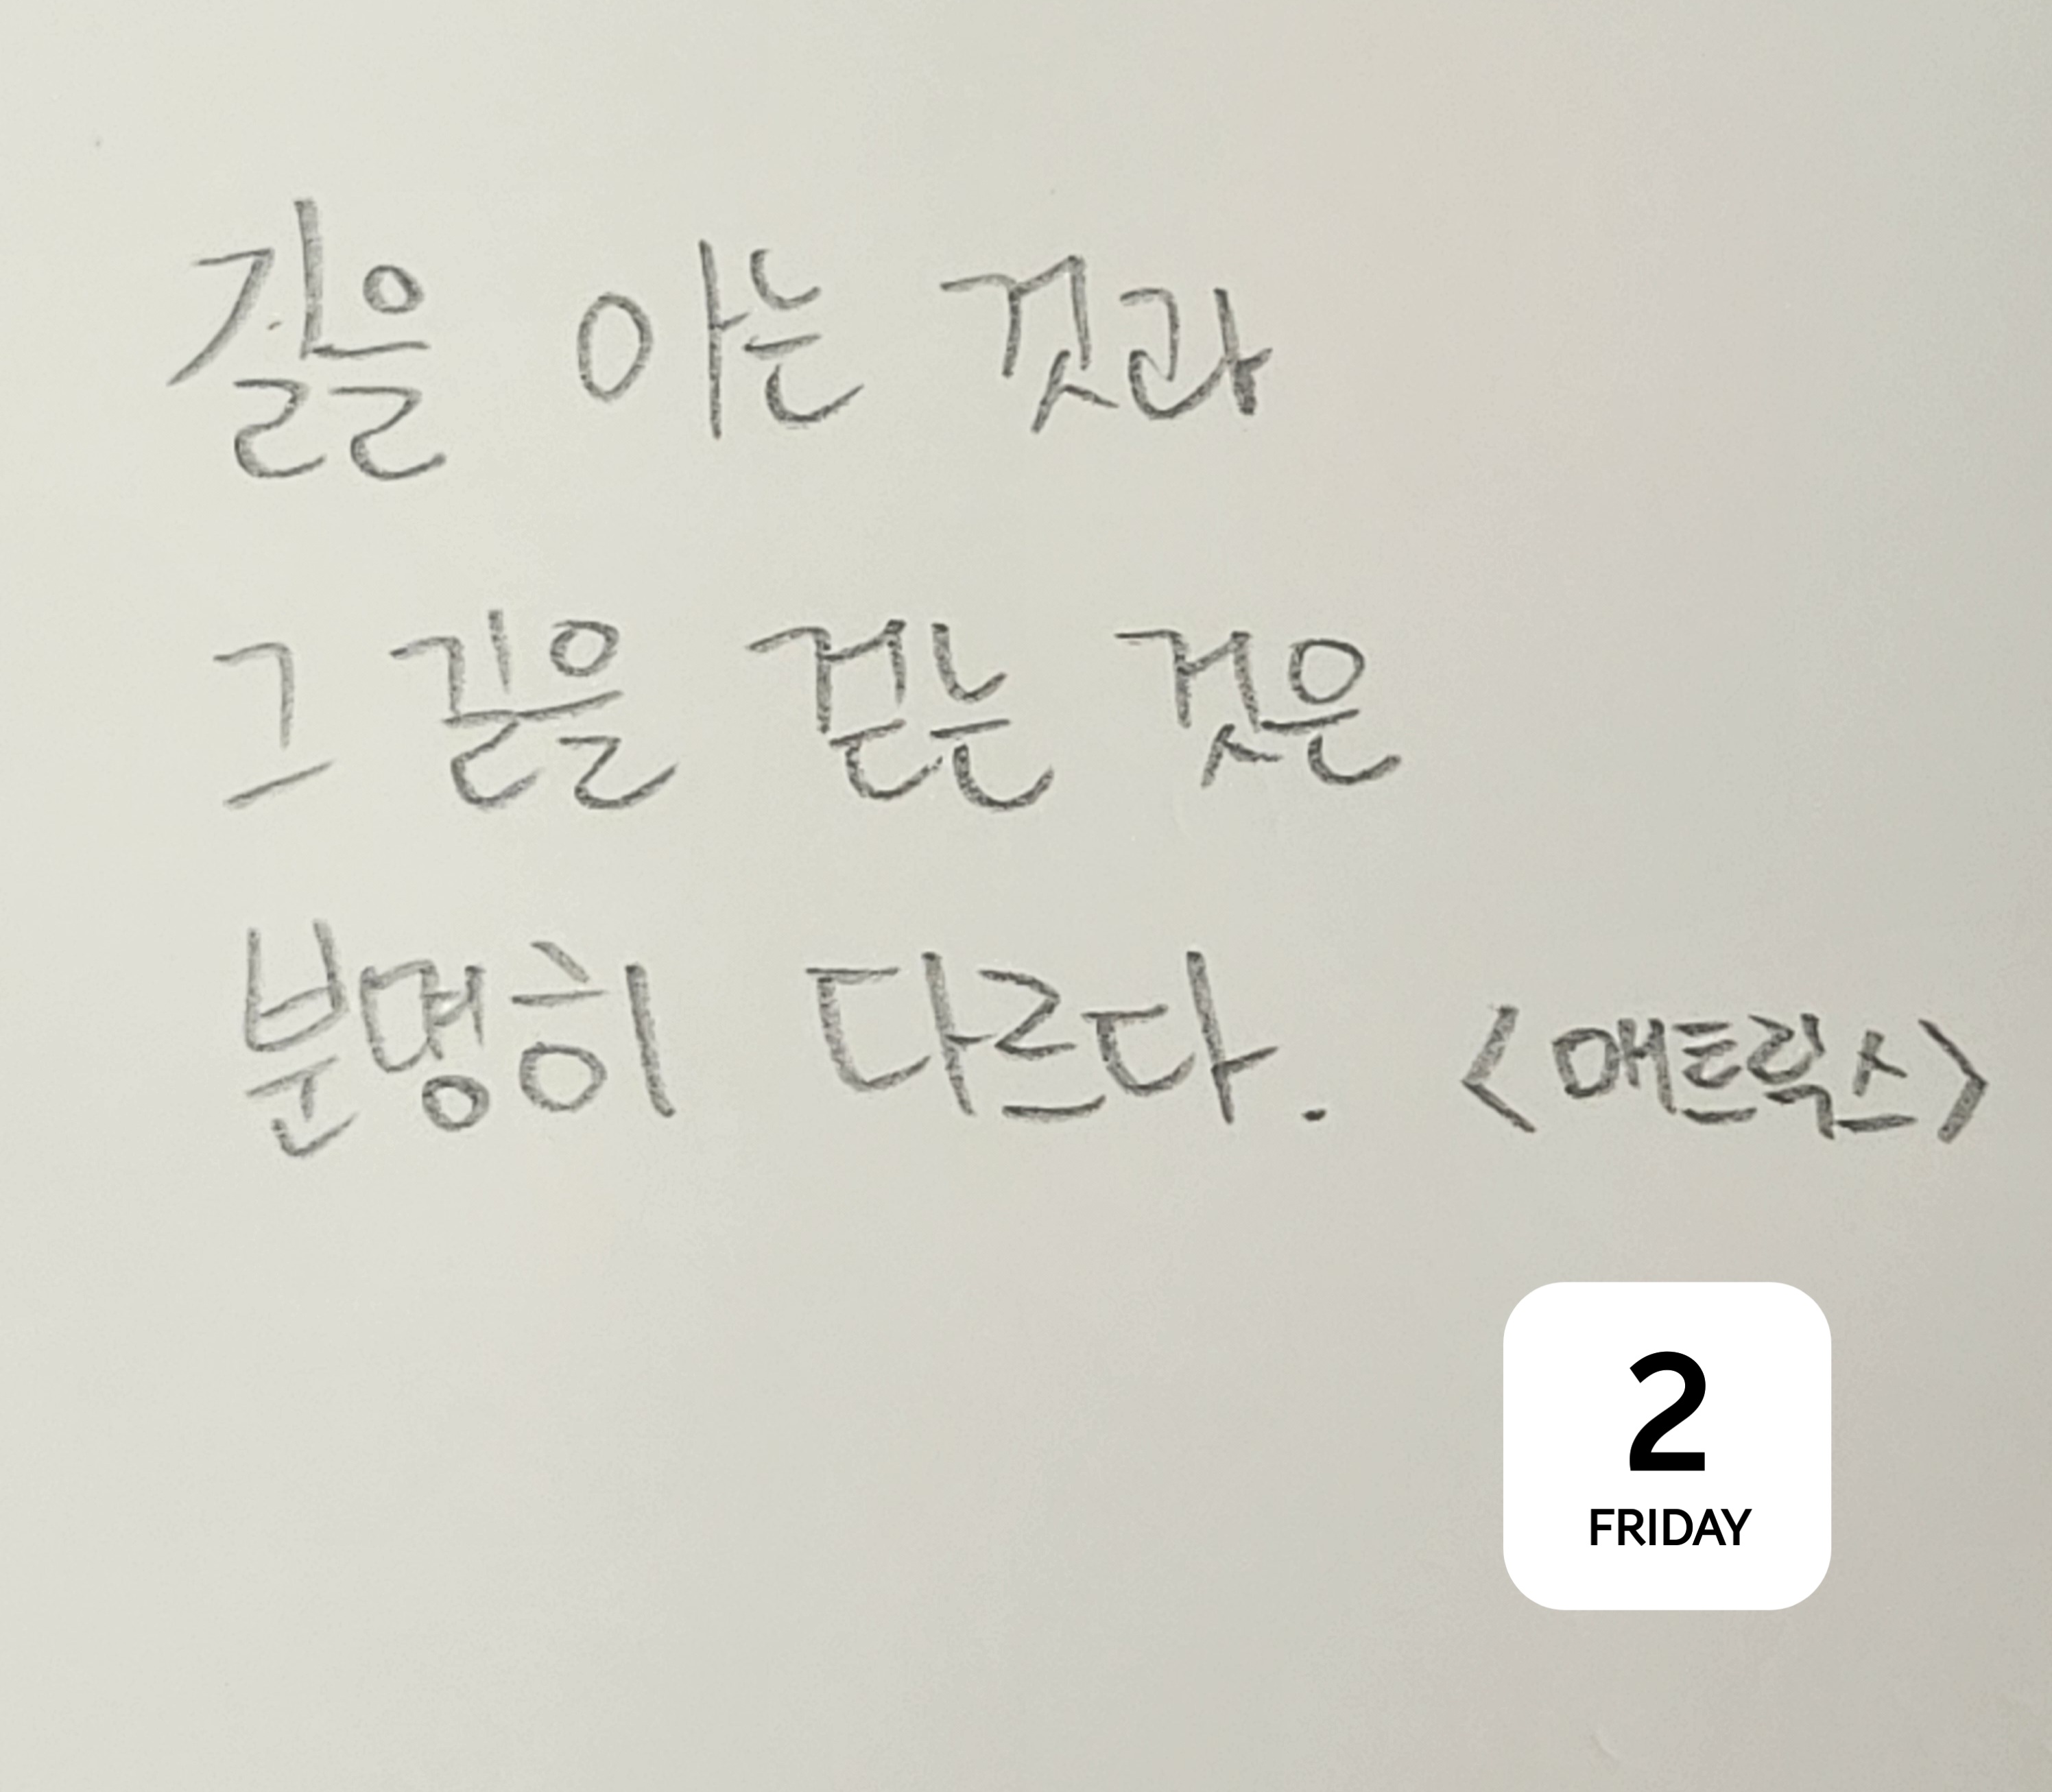 길을 아는 것과
그 길을 걷는 것은
분명히 다르다. <매트릭스>
2
FRIDAY